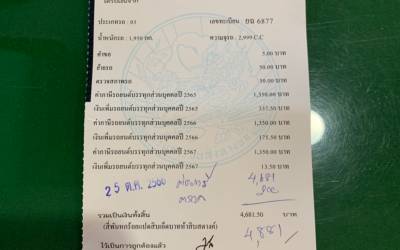 ประเภทรถ : 03 เลขทะเบียน : ยฉ 6877
น้ำหนักรถ : 1,950 กก. ความจุรถ : 2,999 C.C
ค่าขอ 5.00 บาท
50.00 บาท
ตรวจสภาพรถ บาท
ค่าภาษีรถยนต์บรรทุกส่วนบุคคลปี 2565 1,350.00 บาท
เงินเพิ่มรถยนต์บรรทุกส่วนบุคคลปี 2565 337.50 บาท
ค่าภาษีรถยนต์บรรทุกส่วนบุคคลปี 2566 1,350.00 บาท
เงินเพิ่มรถยนต์บรรทุกส่วนบุคคลปี 2566 175.50 บาท
ค่าภาษีรถยนต์บรรทุกส่วนบุคคลปี 2567 1,350.00 บาท
เงินเพิ่มรถยนต์บรรทุกส่วนบุคคลปี 2567 13.50 บาท
25 ต.ค. 4,681
200
รวมเป็นเงินทั้งสิ้น 4,681.50 บาท
(สี่พันหกร้อยแปดสิบเอ็ดบาทห้าสิบสตางค์)
4,881
ไว้เป็นการถูกต้องแล้ว